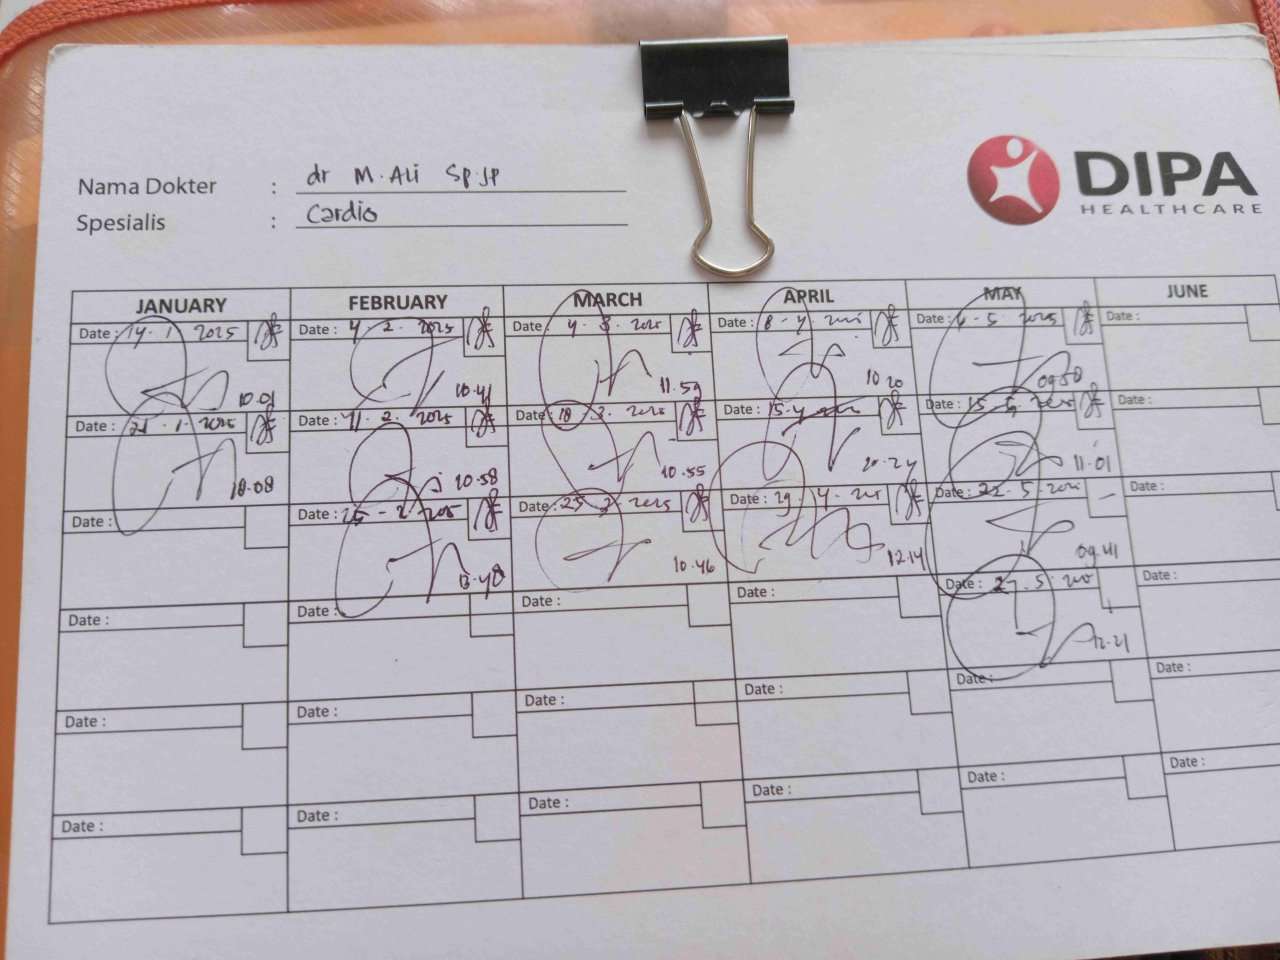 DIPA
HEALTHCARE
Nama Dokter : dr M. Ali Sp.JP
Spesialis : Cardio
JANUARY FEBRUARY MARCH APRIL MAY JUNE
Date : 14 . 1 . 2025 Date : 4 . 2 . 2025 Date : 4 . 3 . 2025 Date : 8 - 4 Date : 6 . 5 . 2025 Date :
10.01 10.41 11.59 10 20 09.58
Date : 21 . 1 . 2025 Date : 11 . 2 . 2025 Date : 18 . 3 . 2025 Date : 15 . 4 Date : 15 . 5 Date :
10.08 10.58 10.55 11.01
Date : Date : 25 - 2 . 2025 Date : 25 . 3 . 2025 Date : 29 . 4 Date : 22 . 5 Date :
13.48 10.46 12.14 09.41
Date : Date : Date : Date : Date : 27 . 5 Date :
12.21
Date : Date : Date : Date : Date : Date :
Date : Date : Date : Date : Date : Date :